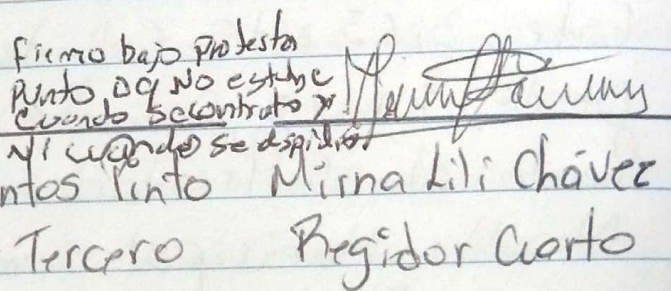 firmo bajo protesta
punto 09 NO estube
cuando se contrato y
Ni cuando se despidio
ntos Pinto Mirna Lili Chávez
Tercero Regidor Cuarto